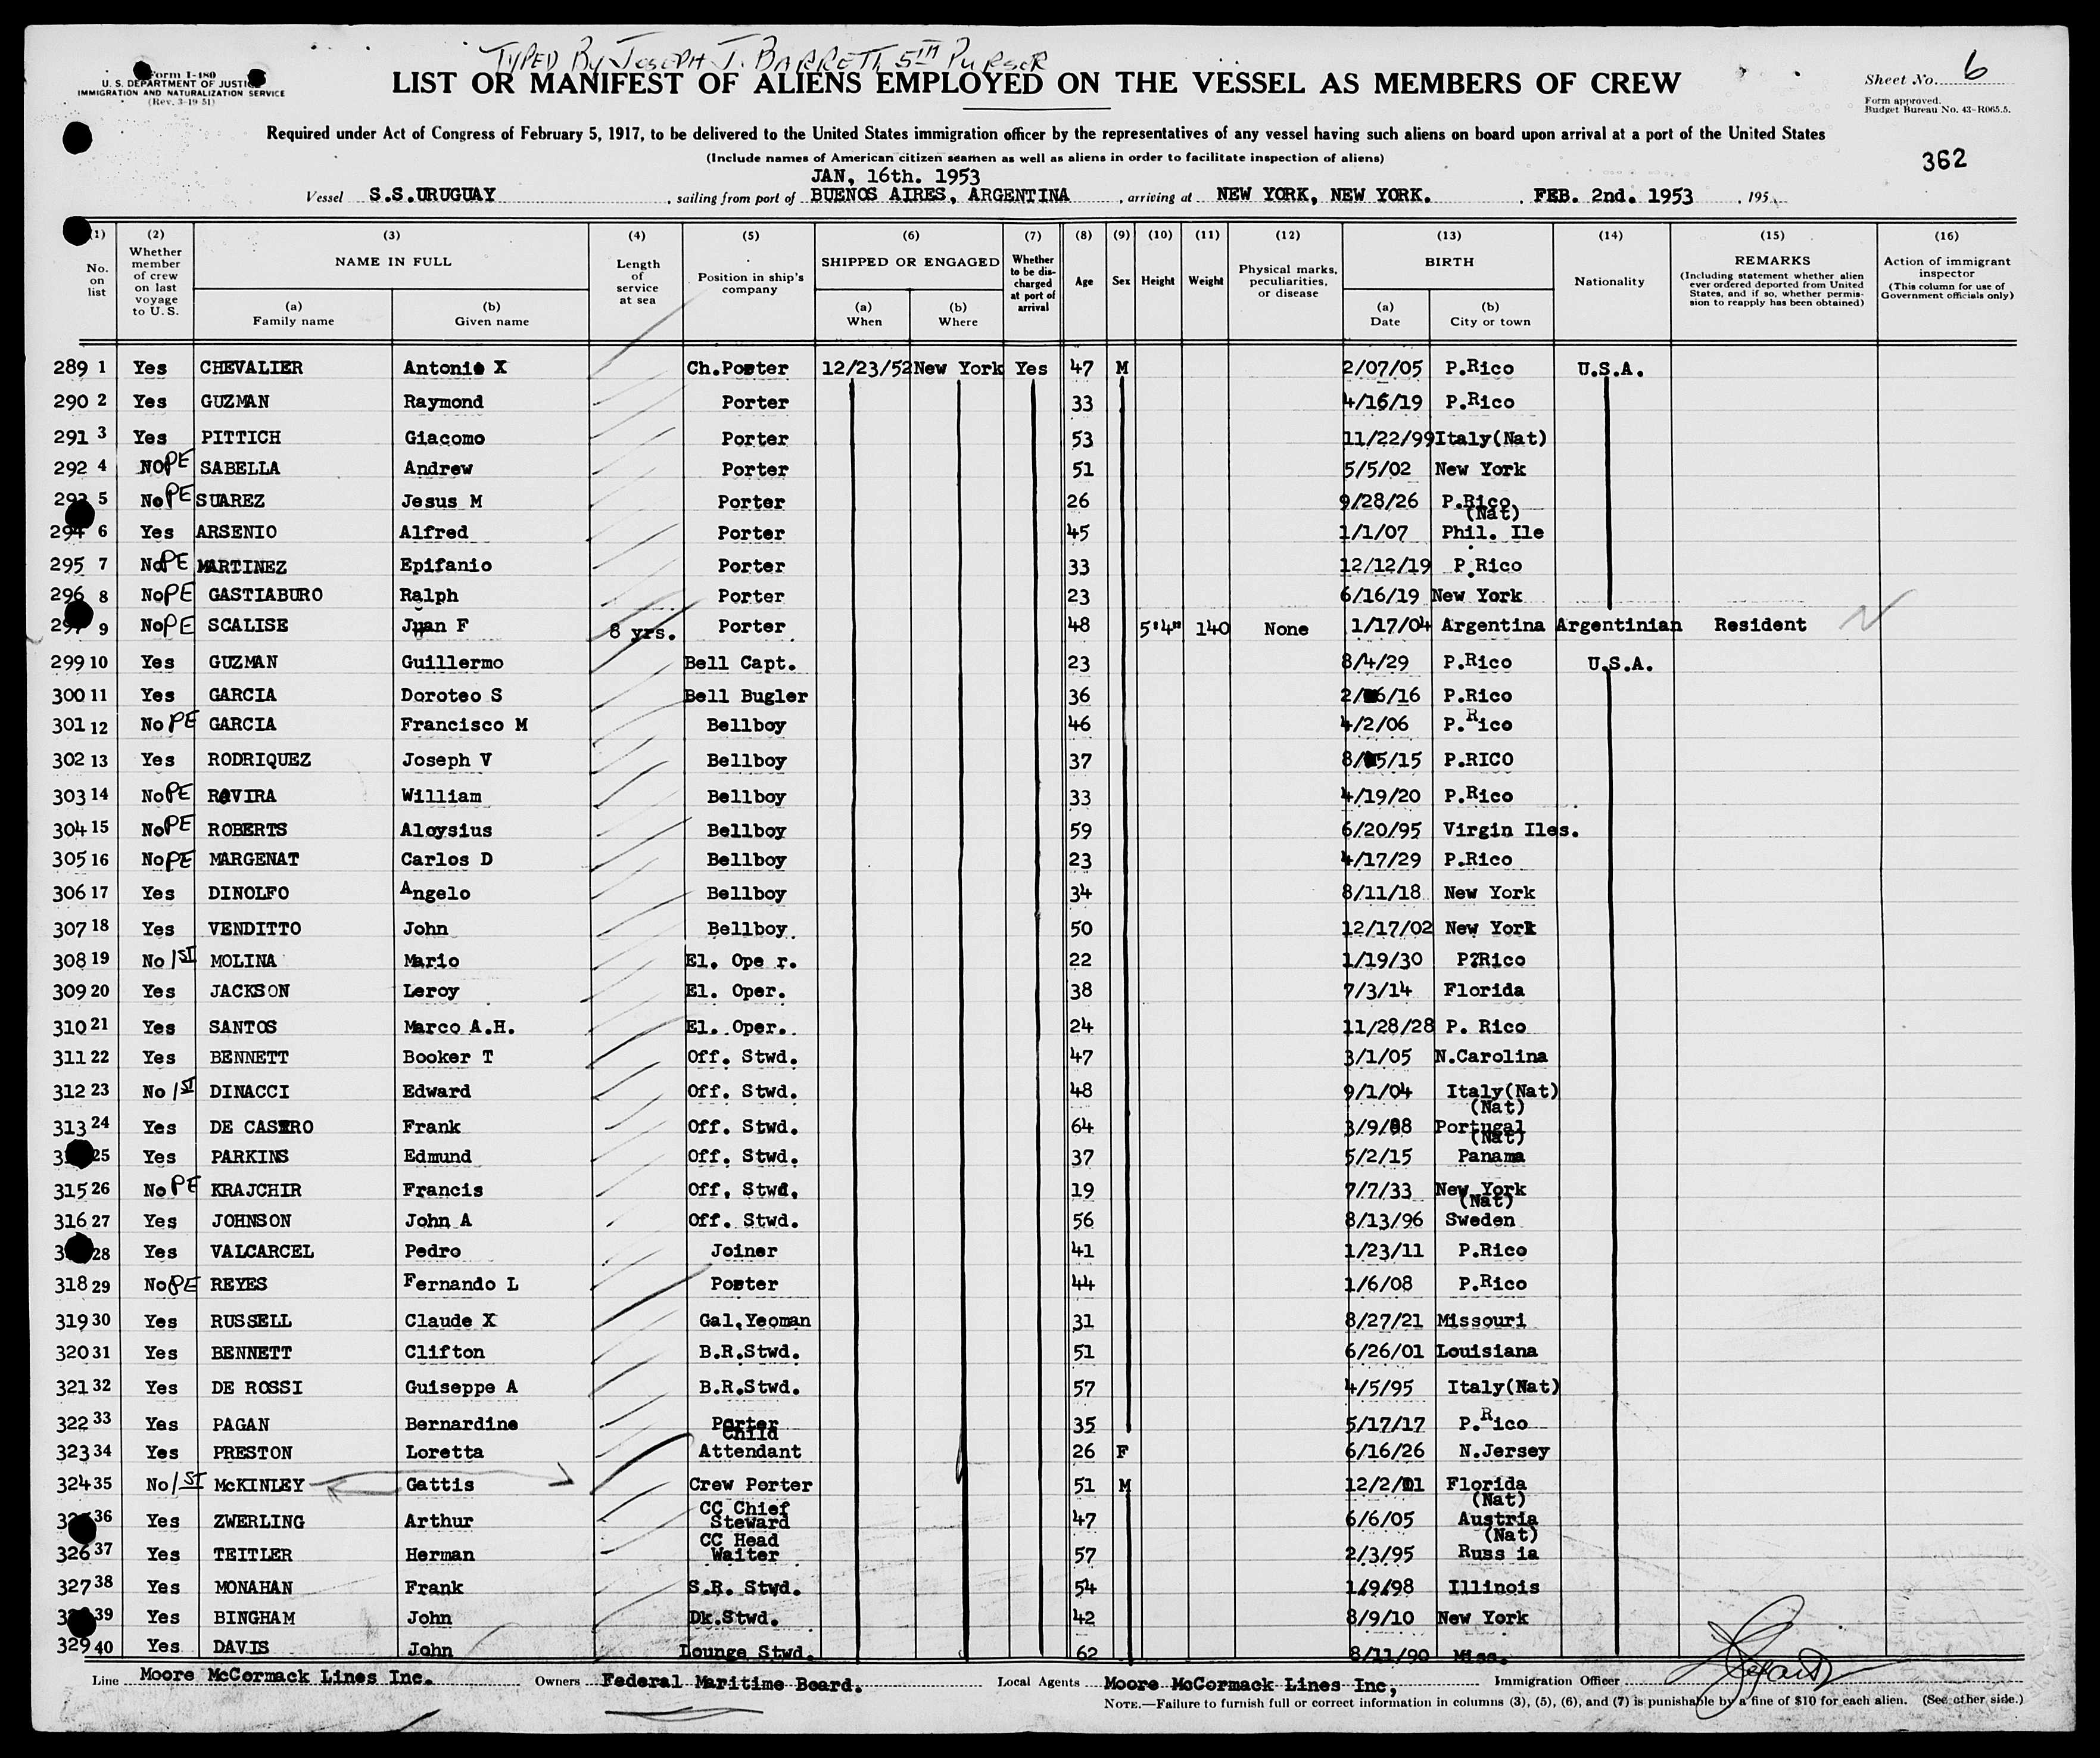 TYPED By JOSEPH J. BARRETT 5TH PURSER
Form I-180
U. S. DEPARTMENT OF JUSTICE
IMMIGRATION AND NATURALIZATION SERVICE
(Rev. 3-19-51)
LIST OR MANIFEST OF ALIENS EMPLOYED ON THE VESSEL AS MEMBERS OF CREW
Sheet No. 6
Form approved.
Budget Bureau No. 43-R065.5.
Required under Act of Congress of February 5, 1917, to be delivered to the United States immigration officer by the representatives of any vessel having such aliens on board upon arrival at a port of the United States
(Include names of American citizen seamen as well as aliens in order to facilitate inspection of aliens)
362
JAN, 16th. 1953
Vessel S.S.URUGUAY , sailing from port of BUENOS AIRES, ARGENTINA , arriving at NEW YORK, NEW YORK. , FEB. 2nd. 1953 , 195
(1) (2) (3) (4) (5) (6) (7) (8) (9) (10) (11) (12) (13) (14) (15) (16)
No. on list
Whether member of crew on last voyage to U. S.
NAME IN FULL
(a) Family name
(b) Given name
Length of service at sea
Position in ship's company
SHIPPED OR ENGAGED
(a) When
(b) Where
Whether to be discharged at port of arrival
Age
Sex
Height
Weight
Physical marks, peculiarities, or disease
BIRTH
(a) Date
(b) City or town
Nationality
REMARKS
(Including statement whether alien ever ordered deported from United States, and if so, whether permission to reapply has been obtained)
Action of immigrant inspector
(This column for use of Government officials only)
289 1 Yes CHEVALIER Antonio X Ch.Porter 12/23/52 New York Yes 47 M 2/07/05 P.Rico U.S.A.
290 2 Yes GUZMAN Raymond Porter 33 4/16/19 P.Rico
291 3 Yes PITTICH Giacomo Porter 53 11/22/99 Italy(Nat)
292 4 NO PE SABELLA Andrew Porter 51 5/5/02 New York
293 5 No PE SUAREZ Jesus M Porter 26 9/28/26 P.Rico
294 6 Yes ARSENIO Alfred Porter 45 1/1/07 (Nat) Phil. Ile
295 7 No PE MARTINEZ Epifanio Porter 33 12/12/19 P.Rico
296 8 No PE GASTIABURO Ralph Porter 23 6/16/19 New York
297 9 No PE SCALISE Juan F 8 yrs. Porter 48 5'4" 140 None 1/17/04 Argentina Argentinian Resident
299 10 Yes GUZMAN Guillermo Bell Capt. 23 8/4/29 P.Rico U.S.A.
300 11 Yes GARCIA Doroteo S Bell Bugler 36 P.Rico
301 12 No PE GARCIA Francisco M Bellboy 46 4/2/06 P.Rico
302 13 Yes RODRIQUEZ Joseph V Bellboy 37 P.RICO
303 14 No PE ROVIRA William Bellboy 33 4/19/20 P.Rico
304 15 No PE ROBERTS Aloysius Bellboy 59 6/20/95 Virgin Iles.
305 16 No PE MARGENAT Carlos D Bellboy 23 4/17/29 P.Rico
306 17 Yes DINOLFO Angelo Bellboy 34 8/11/18 New York
307 18 Yes VENDITTO John Bellboy 50 12/17/02 New York
308 19 No 1ST MOLINA Mario El. Ope r. 22 1/19/30 P?Rico
309 20 Yes JACKSON Leroy El. Oper. 38 7/3/14 Florida
310 21 Yes SANTOS Marco A.H. El. Oper. 24 11/28/28 P. Rico
311 22 Yes BENNETT Booker T Off. Stwd. 47 3/1/05 N.Carolina
312 23 No 1ST DINACCI Edward Off. Stwd. 48 9/1/04 Italy(Nat)
313 24 Yes DE CASTRO Frank Off. Stwd. 64 3/9/88 (Nat) Portugal
25 Yes PARKINS Edmund Off. Stwd. 37 5/2/15 (Nat) Panama
315 26 No PE KRAJCHIR Francis Off. Stwd. 19 7/7/33 New York
316 27 Yes JOHNSON John A Off. Stwd. 56 8/13/96 (Nat) Sweden
28 Yes VALCARCEL Pedro Joiner 41 1/23/11 P.Rico
318 29 No PE REYES Fernando L Porter 44 1/6/08 P.Rico
319 30 Yes RUSSELL Claude X Gal.Yeoman 31 8/27/21 Missouri
320 31 Yes BENNETT Clifton B.R.Stwd. 51 6/26/01 Louisiana
321 32 Yes DE ROSSI Guiseppe A B.R.Stwd. 57 4/5/95 Italy(Nat)
322 33 Yes PAGAN Bernardine Porter 35 5/17/17 P.Rico
323 34 Yes PRESTON Loretta Child Attendant 26 F 6/16/26 N.Jersey
324 35 No 1ST McKINLEY Gattis Crew Porter 51 M Florida
36 Yes ZWERLING Arthur CC Chief Steward 47 6/6/05 (Nat) Austria
326 37 Yes TEITLER Herman CC Head Waiter 57 2/3/95 (Nat) Russ ia
327 38 Yes MONAHAN Frank S.R. Stwd. 54 1/9/98 Illinois
39 Yes BINGHAM John Dk.Stwd. 42 8/9/10 New York
329 40 Yes DAVIS John Lounge Stwd. 62 8/11/90 Miss.
Line Moore McCormack Lines Inc. Owners Federal Maritime Board. Local Agents Moore McCormack Lines Inc, Immigration Officer
NOTE.—Failure to furnish full or correct information in columns (3), (5), (6), and (7) is punishable by a fine of $10 for each alien. (See other side.)